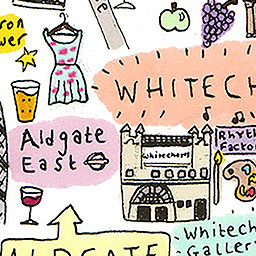 WHITECH
Aldgate
East
whitechapel
Rhyth
Factor
Whitech
Gallery
ALDGATE